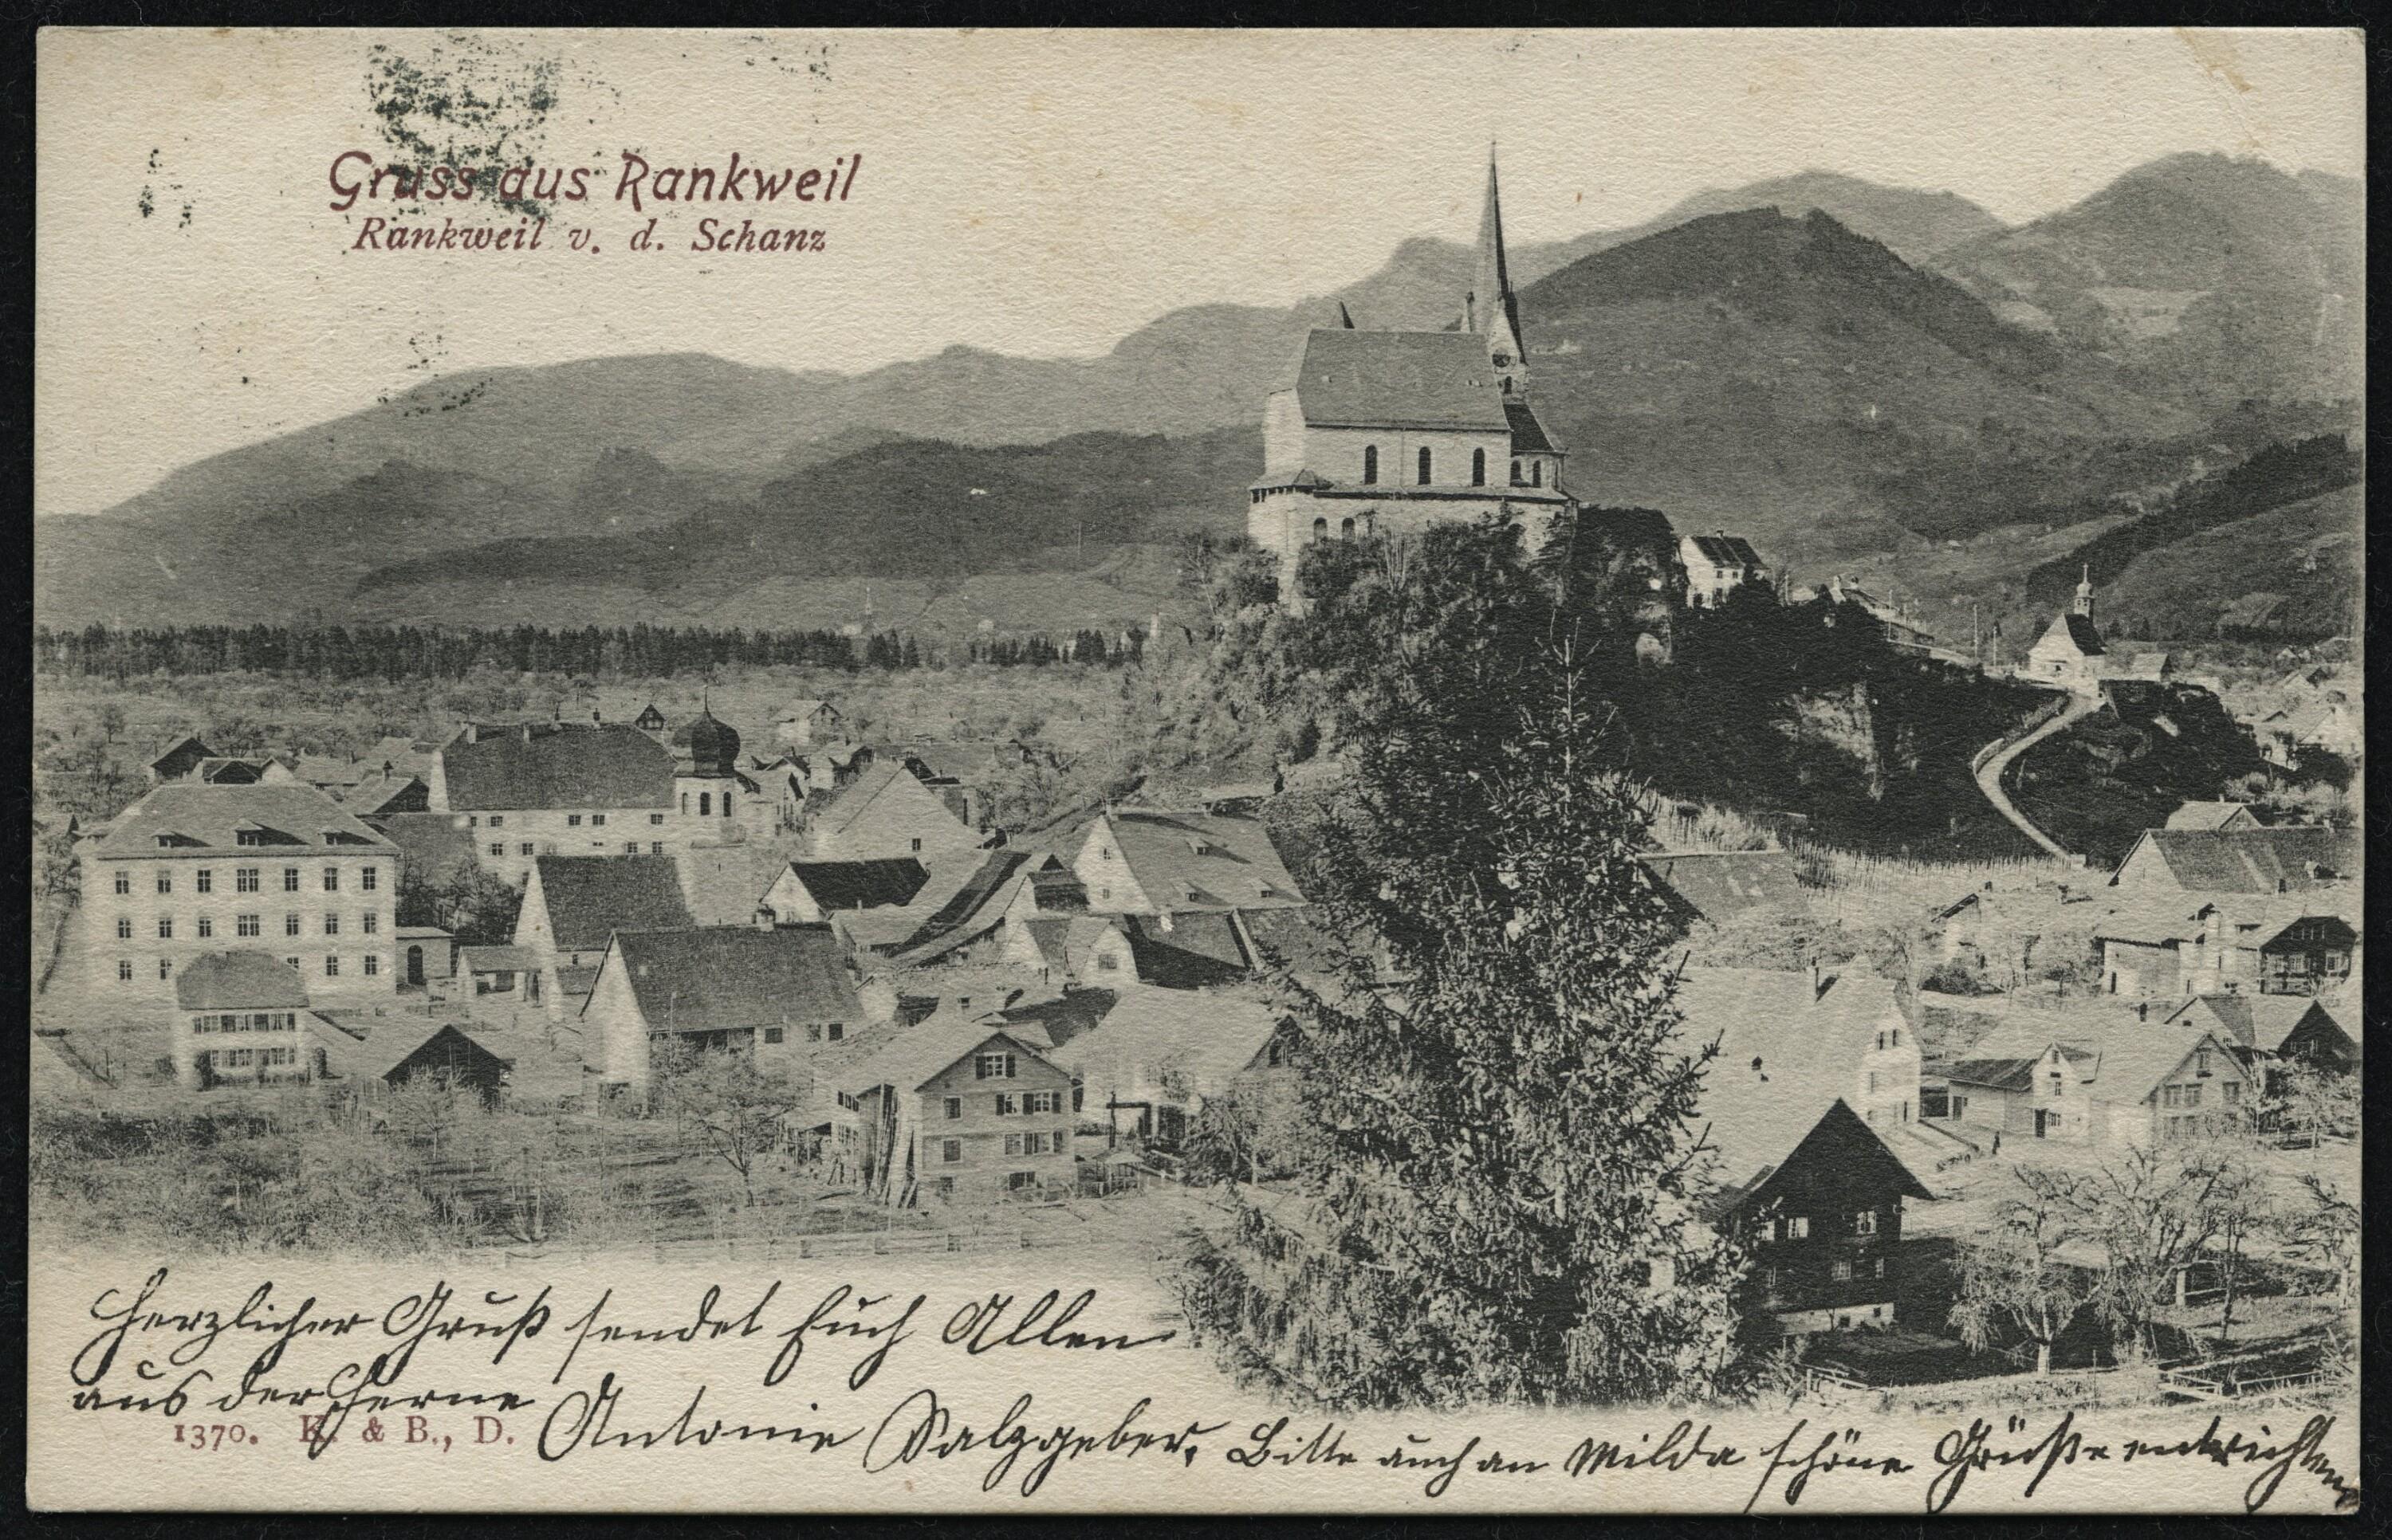 Gruss aus Rankweil
Rankweil v. d. Schanz
Herzlicher Gruß sendet Euch Allen
aus der Ferne
1370. K. & B., D.
Antonie Salzgeber. Bitte auch an Milda schöne Grüße entrichten